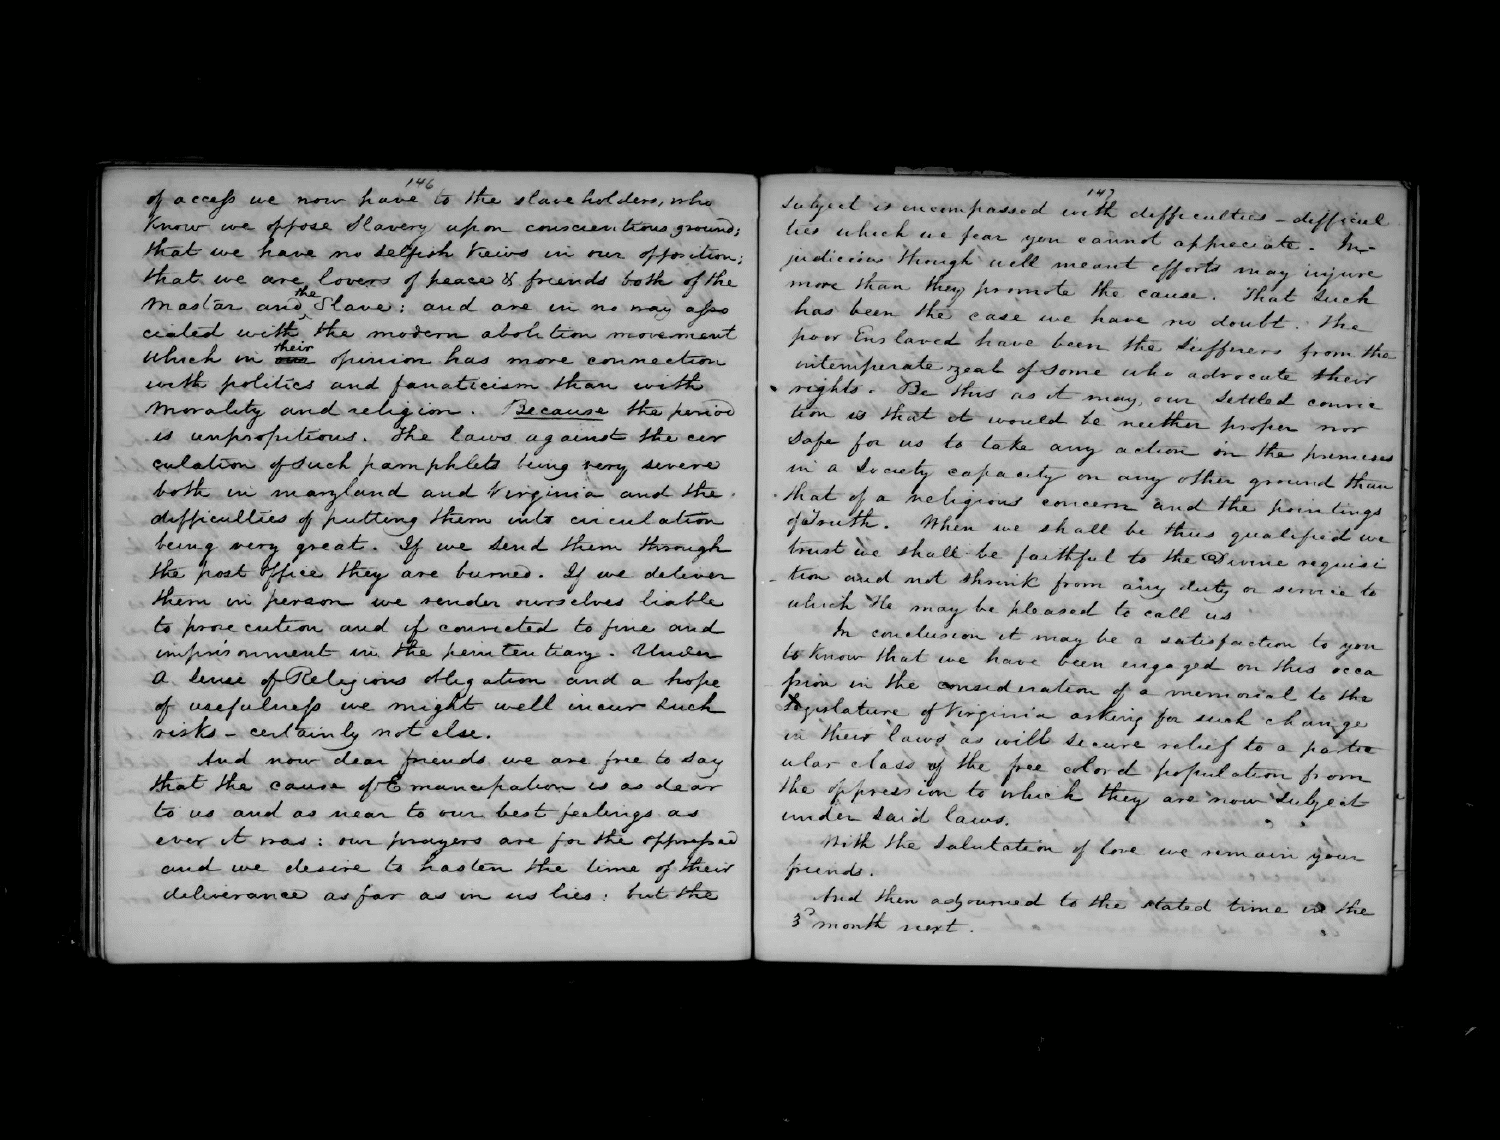 146
of access we now have to the slave holders, who
know we oppose Slavery upon conscientious ground;
that we have no selfish views in our opposition;
that we are lovers of peace & friends both of the
Master and the Slave: and are in no way asso
ciated with the modern abolition movement
which in our their opinion has more connection
with politics and fanaticism than with
morality and religion. Because the period
is unpropitious. The laws against the cir
culation of such pamphlets being very severe
both in maryland and Virginia and the
difficulties of putting them into circulation
being very great. If we send them through
the post office they are burned. If we deliver
them in person we render ourselves liable
to prosecution and if convicted to fine and
imprisonment in the penitentiary. Under
a sense of Religious obligation and a hope
of usefulness we might well incur such
risks - certainly not else.
And now dear friends we are free to say
that the cause of Emancipation is as dear
to us and as near to our best feelings as
ever it was: our prayers are for the oppressed
and we desire to hasten the time of their
deliverance as far as in us lies: but the
147
subject is encompassed with difficulties - difficul
ties which we fear you cannot appreciate. In-
judicious though well meant efforts may injure
more than they promote the cause. That such
has been the case we have no doubt. The
poor Enslaved have been the sufferers from the
intemperate zeal of some who advocate their
rights. Be this as it may, our settled convic
tion is that it would be neither proper nor
safe for us to take any action in the premises
in a Society capacity on any other ground than
that of a religious concern and the pointings
of Truth. When we shall be thus qualified we
trust we shall be faithful to the Divine requisi
tion and not shrink from any duty or service to
which He may be pleased to call us
In conclusion it may be a satisfaction to you
to know that we have been engaged on this occa
sion in the consideration of a memorial to the
Legislature of Virginia asking for such change
in their laws as will secure relief to a partic
ular class of the free colord population from
the oppression to which they are now subject
under said laws.
With the salutation of love we remain your
friends.
And then adjourned to the stated time in the
3d month next.